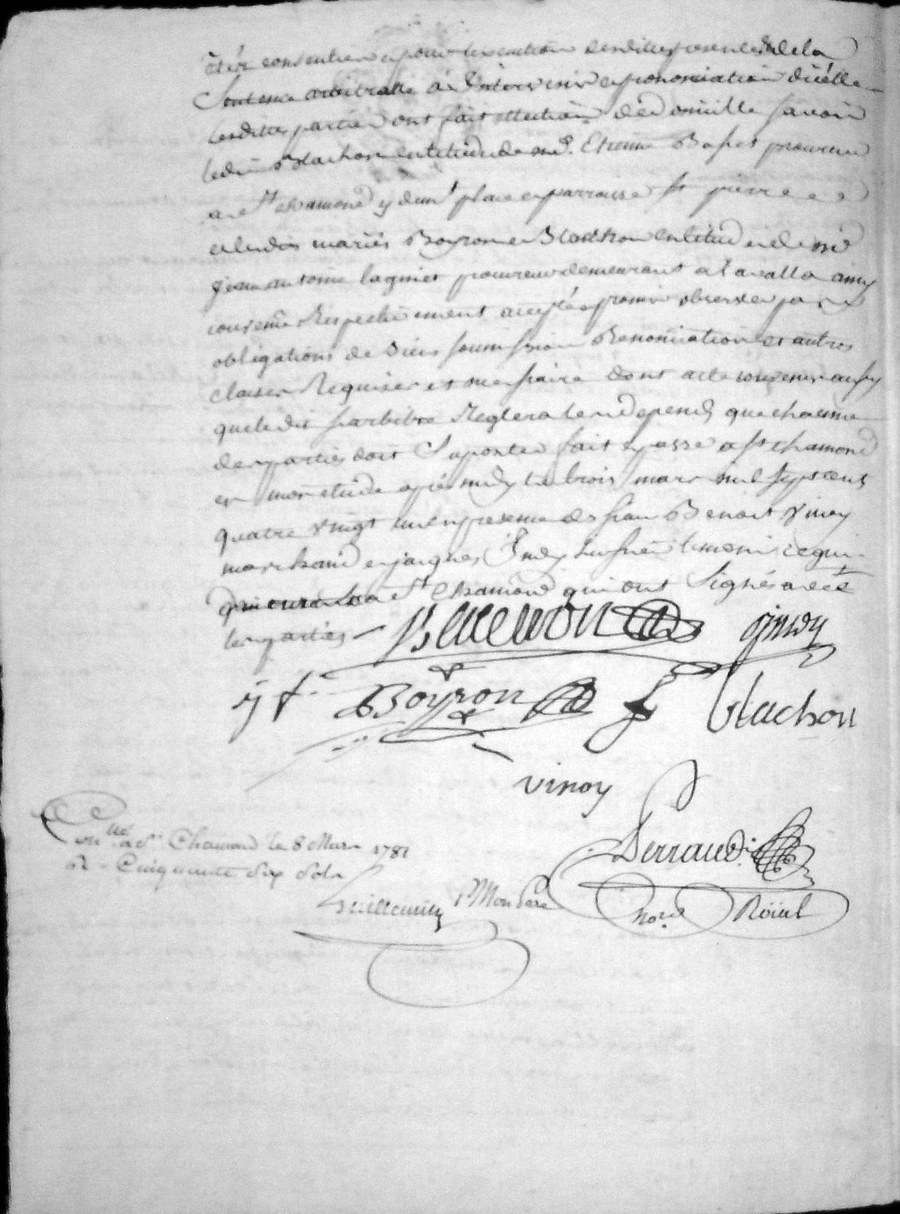 consentien pour lexecution desdittes presentes de la
Sentence arbitralle a Intervenir prononciation dicelle
lesdittes parties ont fait Election de domicille savoir
ledit Blachon en letude de me. Etienne procureur
a st chamond y demt place parroisse st pierre
et lesdits mariés Boyron et Blachon en letude de me
jean antoine lagniet procureur demeurant a lavalla ainsy
convenu Respectivement accepté promis observer par
obligations de biens soumission Renonciation et autres
clauses Requises et necessaire dont acte convenu aussy
que ledit sr arbitre Reglera les depends que chacune
des parties doit Suporter fait et passé a st chamond
en mon etude après midy le trois mars mil sept cent
quatre vingt un en presence de sieur Benoit Vinoy
marchand et jacques temoins requi
a st chamond qui ont Signés avec
les parties
j f. Boyron Blachon
vinoy
Perraud
Conllé a St Chamond le 8 Mars 1781
R. Cinquante Six Sols
nore Roial